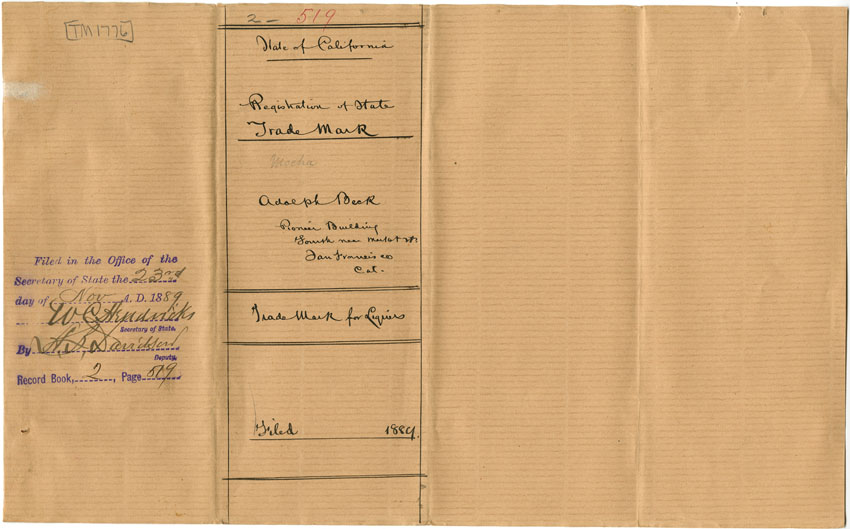 TM1776
2 - 519
State of California
Registration of State
Trade Mark
Mocha
Adolph Beck
Pioneer Building
Fourth near Market St.
San Francisco
Cal.
Trade Mark for Liquors
Filed 1889.
Filed in the Office of the
Secretary of State the 23rd
day of Nov A. D. 1889
W C Hendricks
Secretary of State.
By
Deputy.
Record Book, 2, Page 519